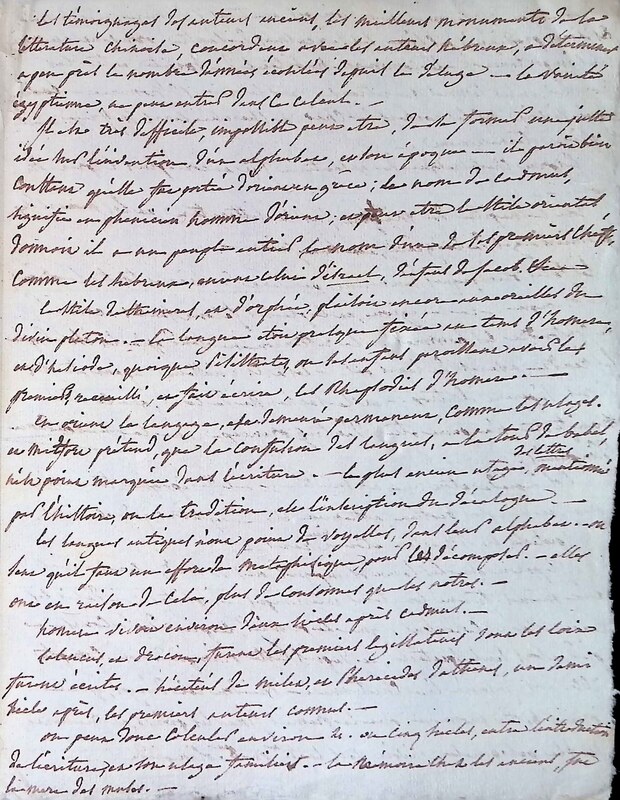 Les témoignages des auteurs anciens, les meilleurs monuments de la
littérature chinoise, concordent avec les auteurs hébreux, a déterminer
a peu près le nombre d'années écoulés depuis le déluge — la vanité
égyptienne, ne peut entrer dans ce calcul. —
Il est très difficile, impossible peut etre, de se former une juste
idée sur l'invention d'un alphabet, et son époque — il parait bien
constant qu'elle fut portée d'orient en grèce; le nom de cadmus,
signifie en phenicien homme d'orient; et peut etre le stile oriental
donnoit il a un peuple entier le nom d'un de ses premiers chefs,
comme les hebreux, eurent celui d'israel, d'enfans de Jacob, &c —
le stile de thimoral, et d'orphée, plaisoit encore aux oreilles du
divin platon. — la langue etoit presque fixée au tems d'homere,
et d'hesiode, quoique Pisistrate, ou ses enfans paroissent avoir les
premiers, recueilli, et fait écrire, les Rhapsodies d'homere —
En orient le langage, est demeuré permanent, comme les usages.
et mitford prétend, que la confusion des langues, a la tour de babel,
n'est point marquée dans l'écriture. — le plus ancien usage, des lettres, mentionné
par l'histoire, ou la tradition, est l'inscription du décalogue. —
les langues antiques n'ont point de voyelles, dans leur alphabet. — on
sent qu'il faut un effort de metaphisique, pour les décomposer. — elles
ont en raison de cela, plus de consonnes que les notres. —
homere vivoit environ deux siecles après cadmus. —
Seleucus, et dracon, furent les premiers legislateurs dont les loix
furent écrites. — hécatée de milet, et Pherecides d'athenes, un demi
siecle après, les premiers auteurs connus. —
on peut donc calculer environ 4. ou cinq siecles, entre l'introduction
de l'écriture, et son usage familier. — la Mémoire chez les anciens, fut
la mere des muses. —